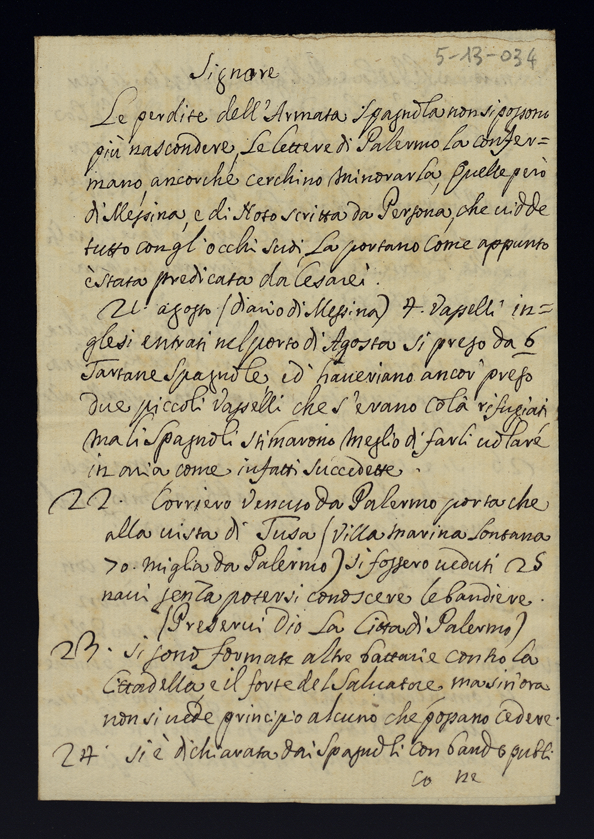 5-13-034
Signore
Le perdite dell'Armata spagnola non si possono
più nascondere, Le lettere di Palermo la confer=
mano, ancorche cerchino minorarla, Quelle però
di Messina, e di Noto scritta da Persona, che vidde
tutto con gl'occhi suoi, La portano come appunto
è stata predicata da Cesarei.
21. agosto (diario di Messina) 4. Vasselli in=
glesi entrati nel porto di Agosta si preso da 6
Tartane Spagnole, ed haveriano ancor preso
due piccoli Vasselli che s'erano colà rifugiati
ma li Spagnoli stimarono meglio di farli volare
in aria come infatti succedette.
22. Corriero venuto da Palermo porta che
alla vista di Tusa (Villa marina lontana
70. miglia da Palermo) si fossero veduti 25
navi senza potersi conoscere le bandiere.
(Preservi Dio La Città di Palermo)
23. si sono formate altre battarie contro la
Cittadella e il forte del Salvatore, ma sin'ora
non si vede principio alcuno che possano cedere.
24. si è dichiarata dai Spagnoli con bando publi
co ne